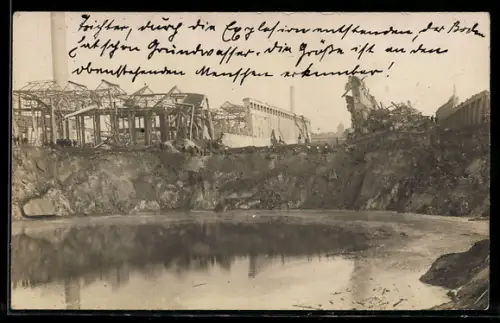 Trichter, durch die Explosion entstanden, der Boden
ist schon Grundwasser. Die Größe ist an den
obenstehenden Menschen erkennbar!